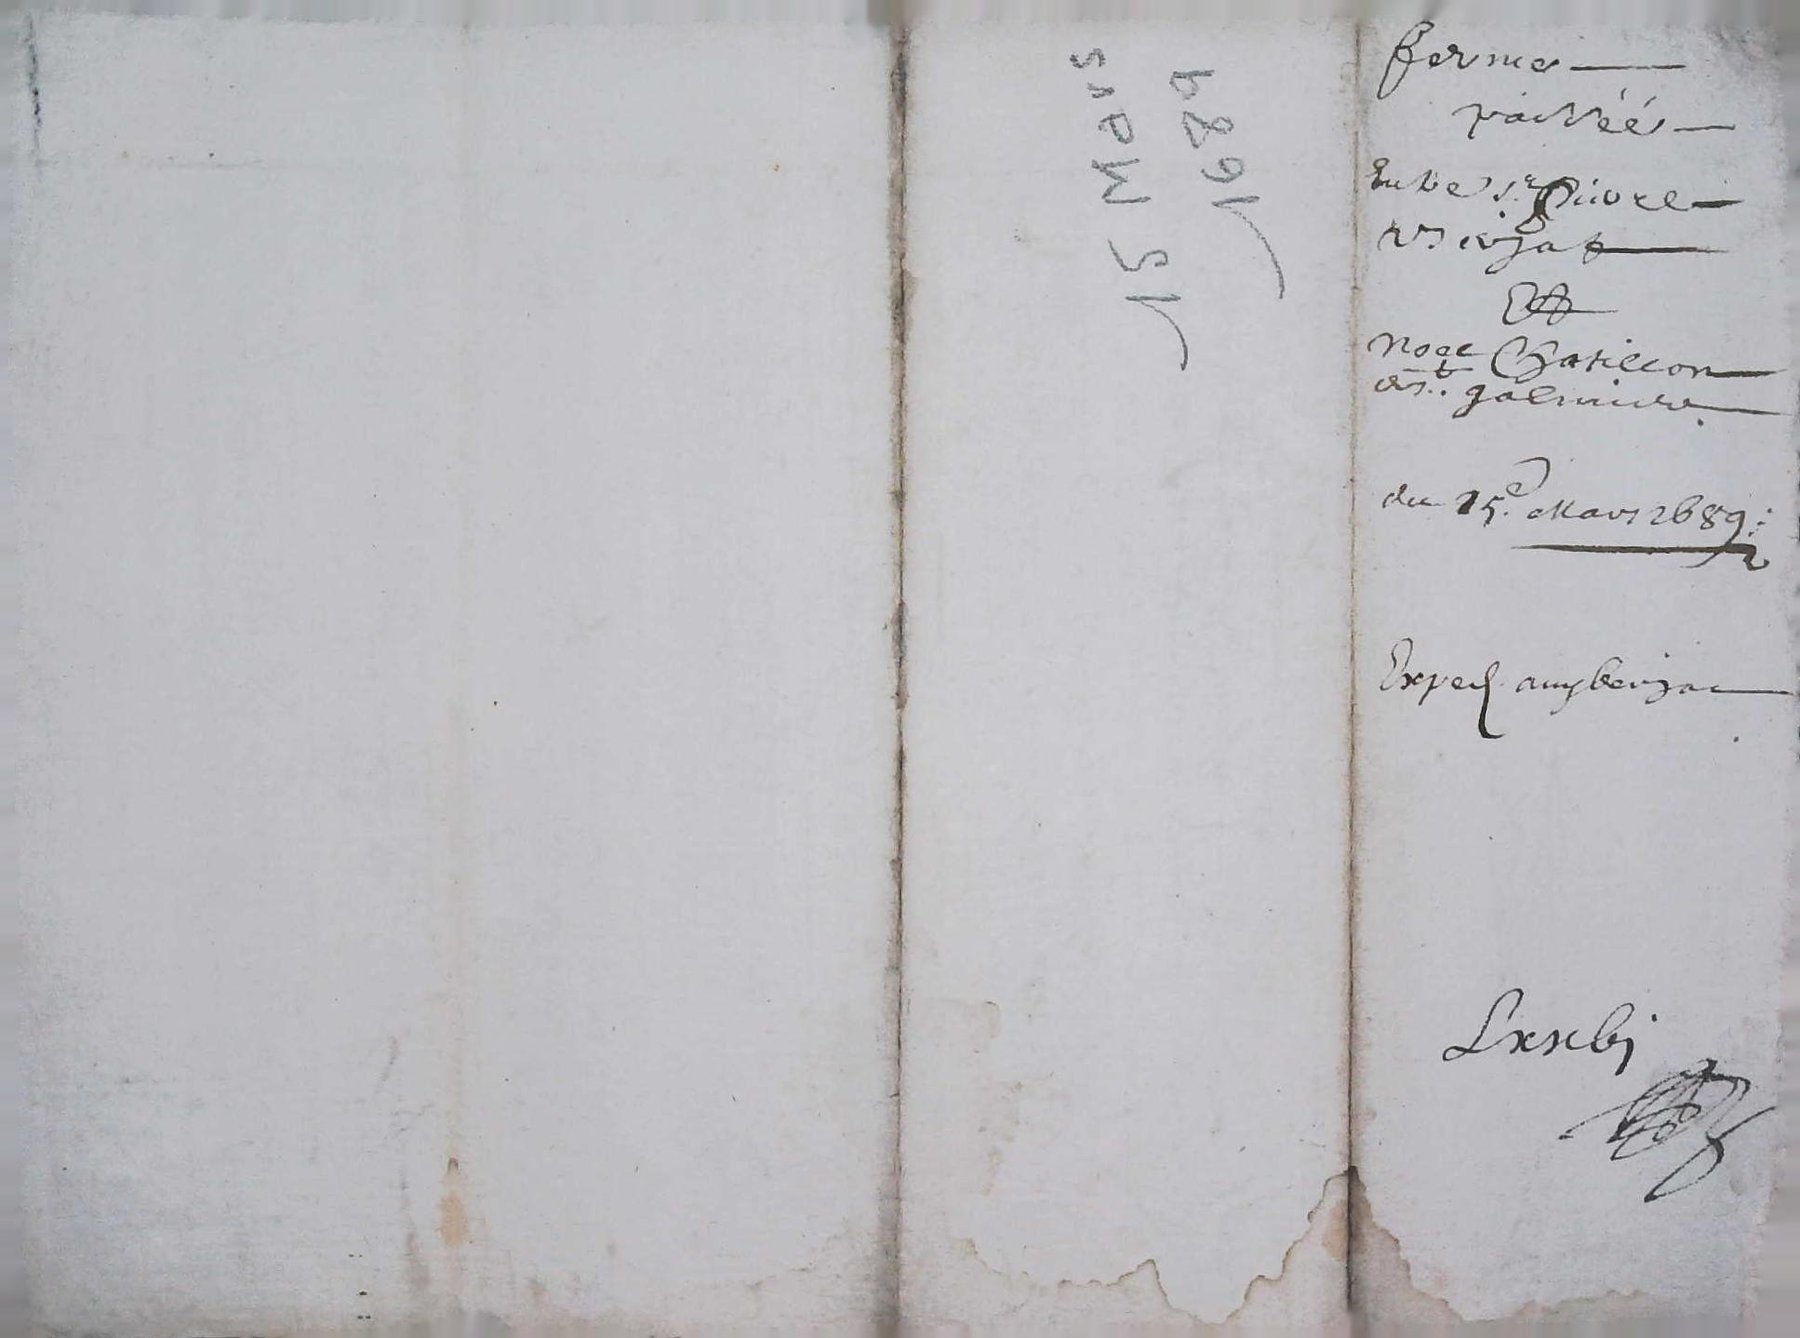 15 Mars
1689
fferme
passéé
Entre sr. Pierre
Verjat
Et
Noel Chatillon
de st. galmier
du 15e. Mars 1689:
Exped. aud verjat
Lxxbj